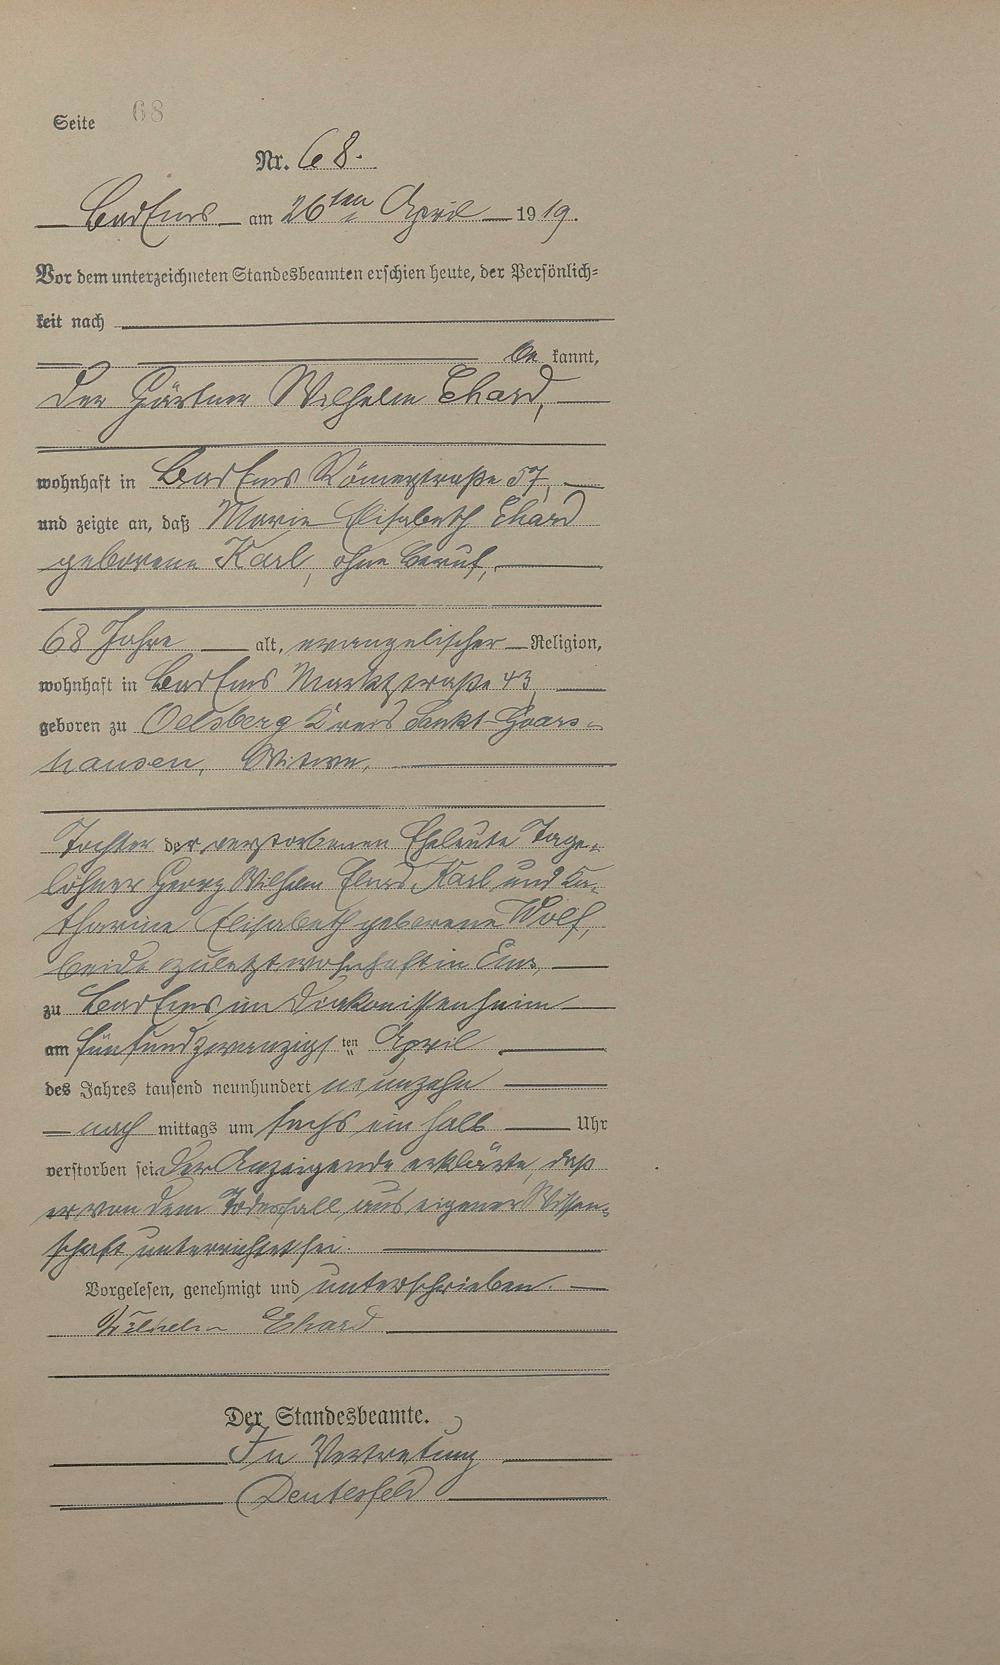 Seite 68
Nr. 68.
Bad Ems am 26ten April 1919.
Vor dem unterzeichneten Standesbeamten erschien heute, der Persönlich=
keit nach
be kannt,
der Gärtner Wilhelm Ehard,
wohnhaft in Bad Ems Römerstraße 57,
und zeigte an, daß Marie Elisabeth Ehard
geborene Karl, ohne Beruf,
68 Jahre alt, evangelischer Religion,
wohnhaft in Bad Ems Marktstraße 43,
geboren zu Oelsberg Kreis Sankt-Goars=
hausen, Witwe,
Tochter der verstorbenen Eheleute Tage=
löhner Georg Wilhelm Karl und Ka=
tharine Elisabeth geborene Wolf,
beide zuletzt wohnhaft in Ems,
zu Bad Ems im Diakonissenheim
am fünfundzwanzigsten April
des Jahres tausend neunhundert neunzehn
nach mittags um sechs ein halb Uhr
verstorben sei. Der Anzeigende erklärte, daß
er von dem Todesfall aus eigener Wissen=
schaft unterrichtet sei.
Vorgelesen, genehmigt und unterschrieben.
Wilhelm Ehard
Der Standesbeamte.
In Vertretung